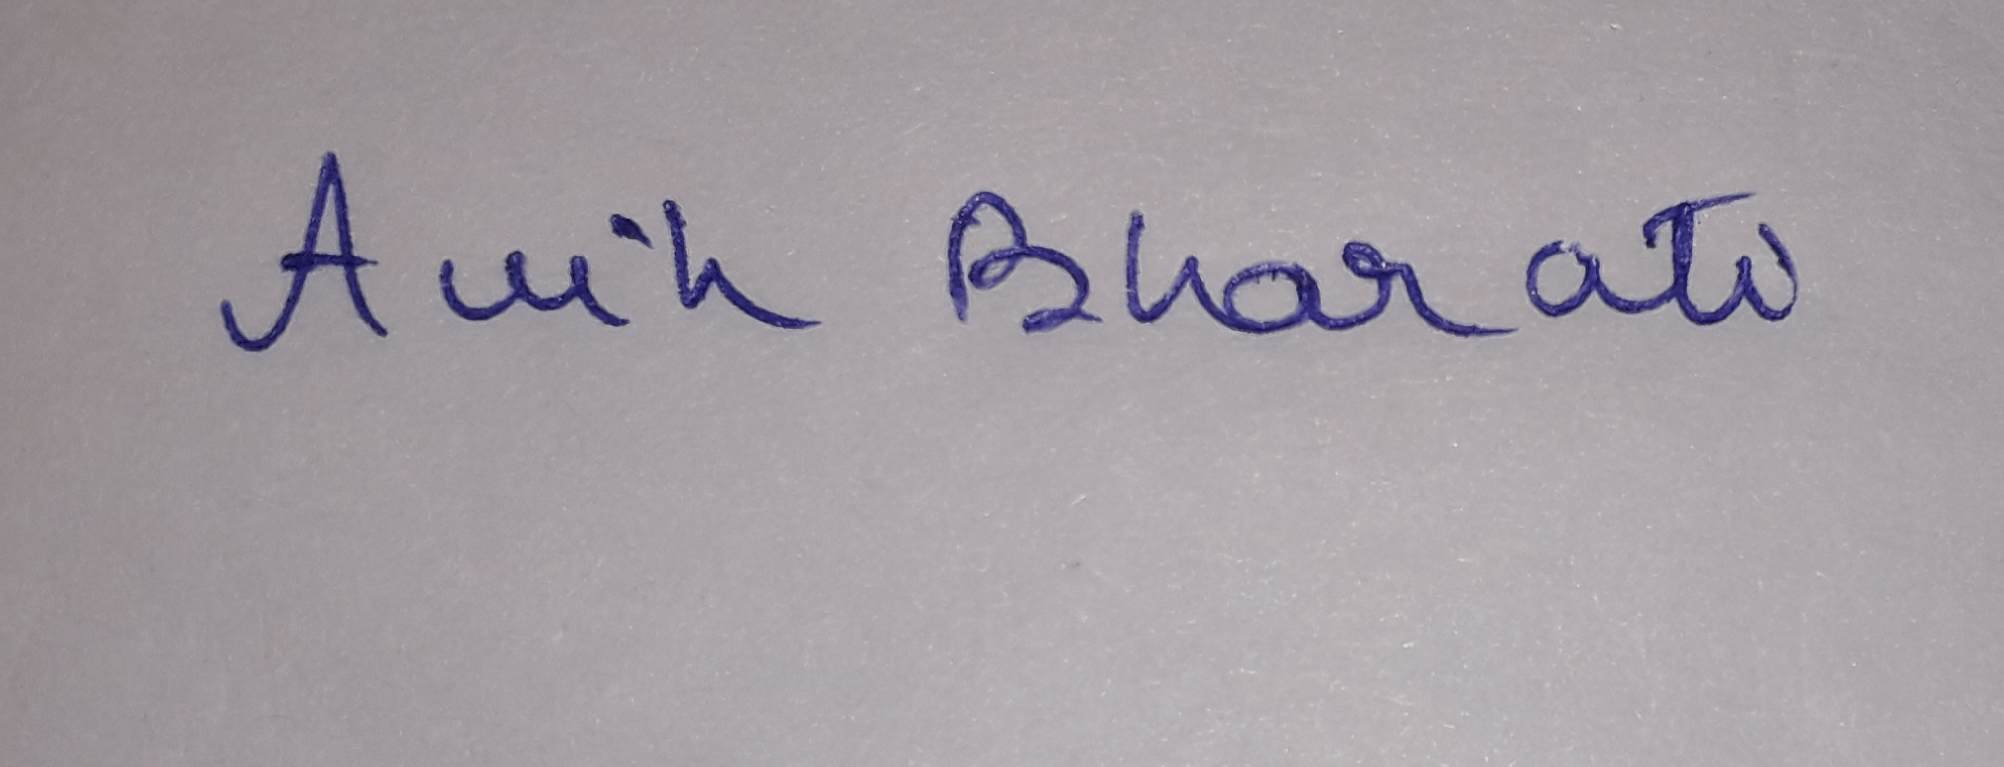 Anik Bharati